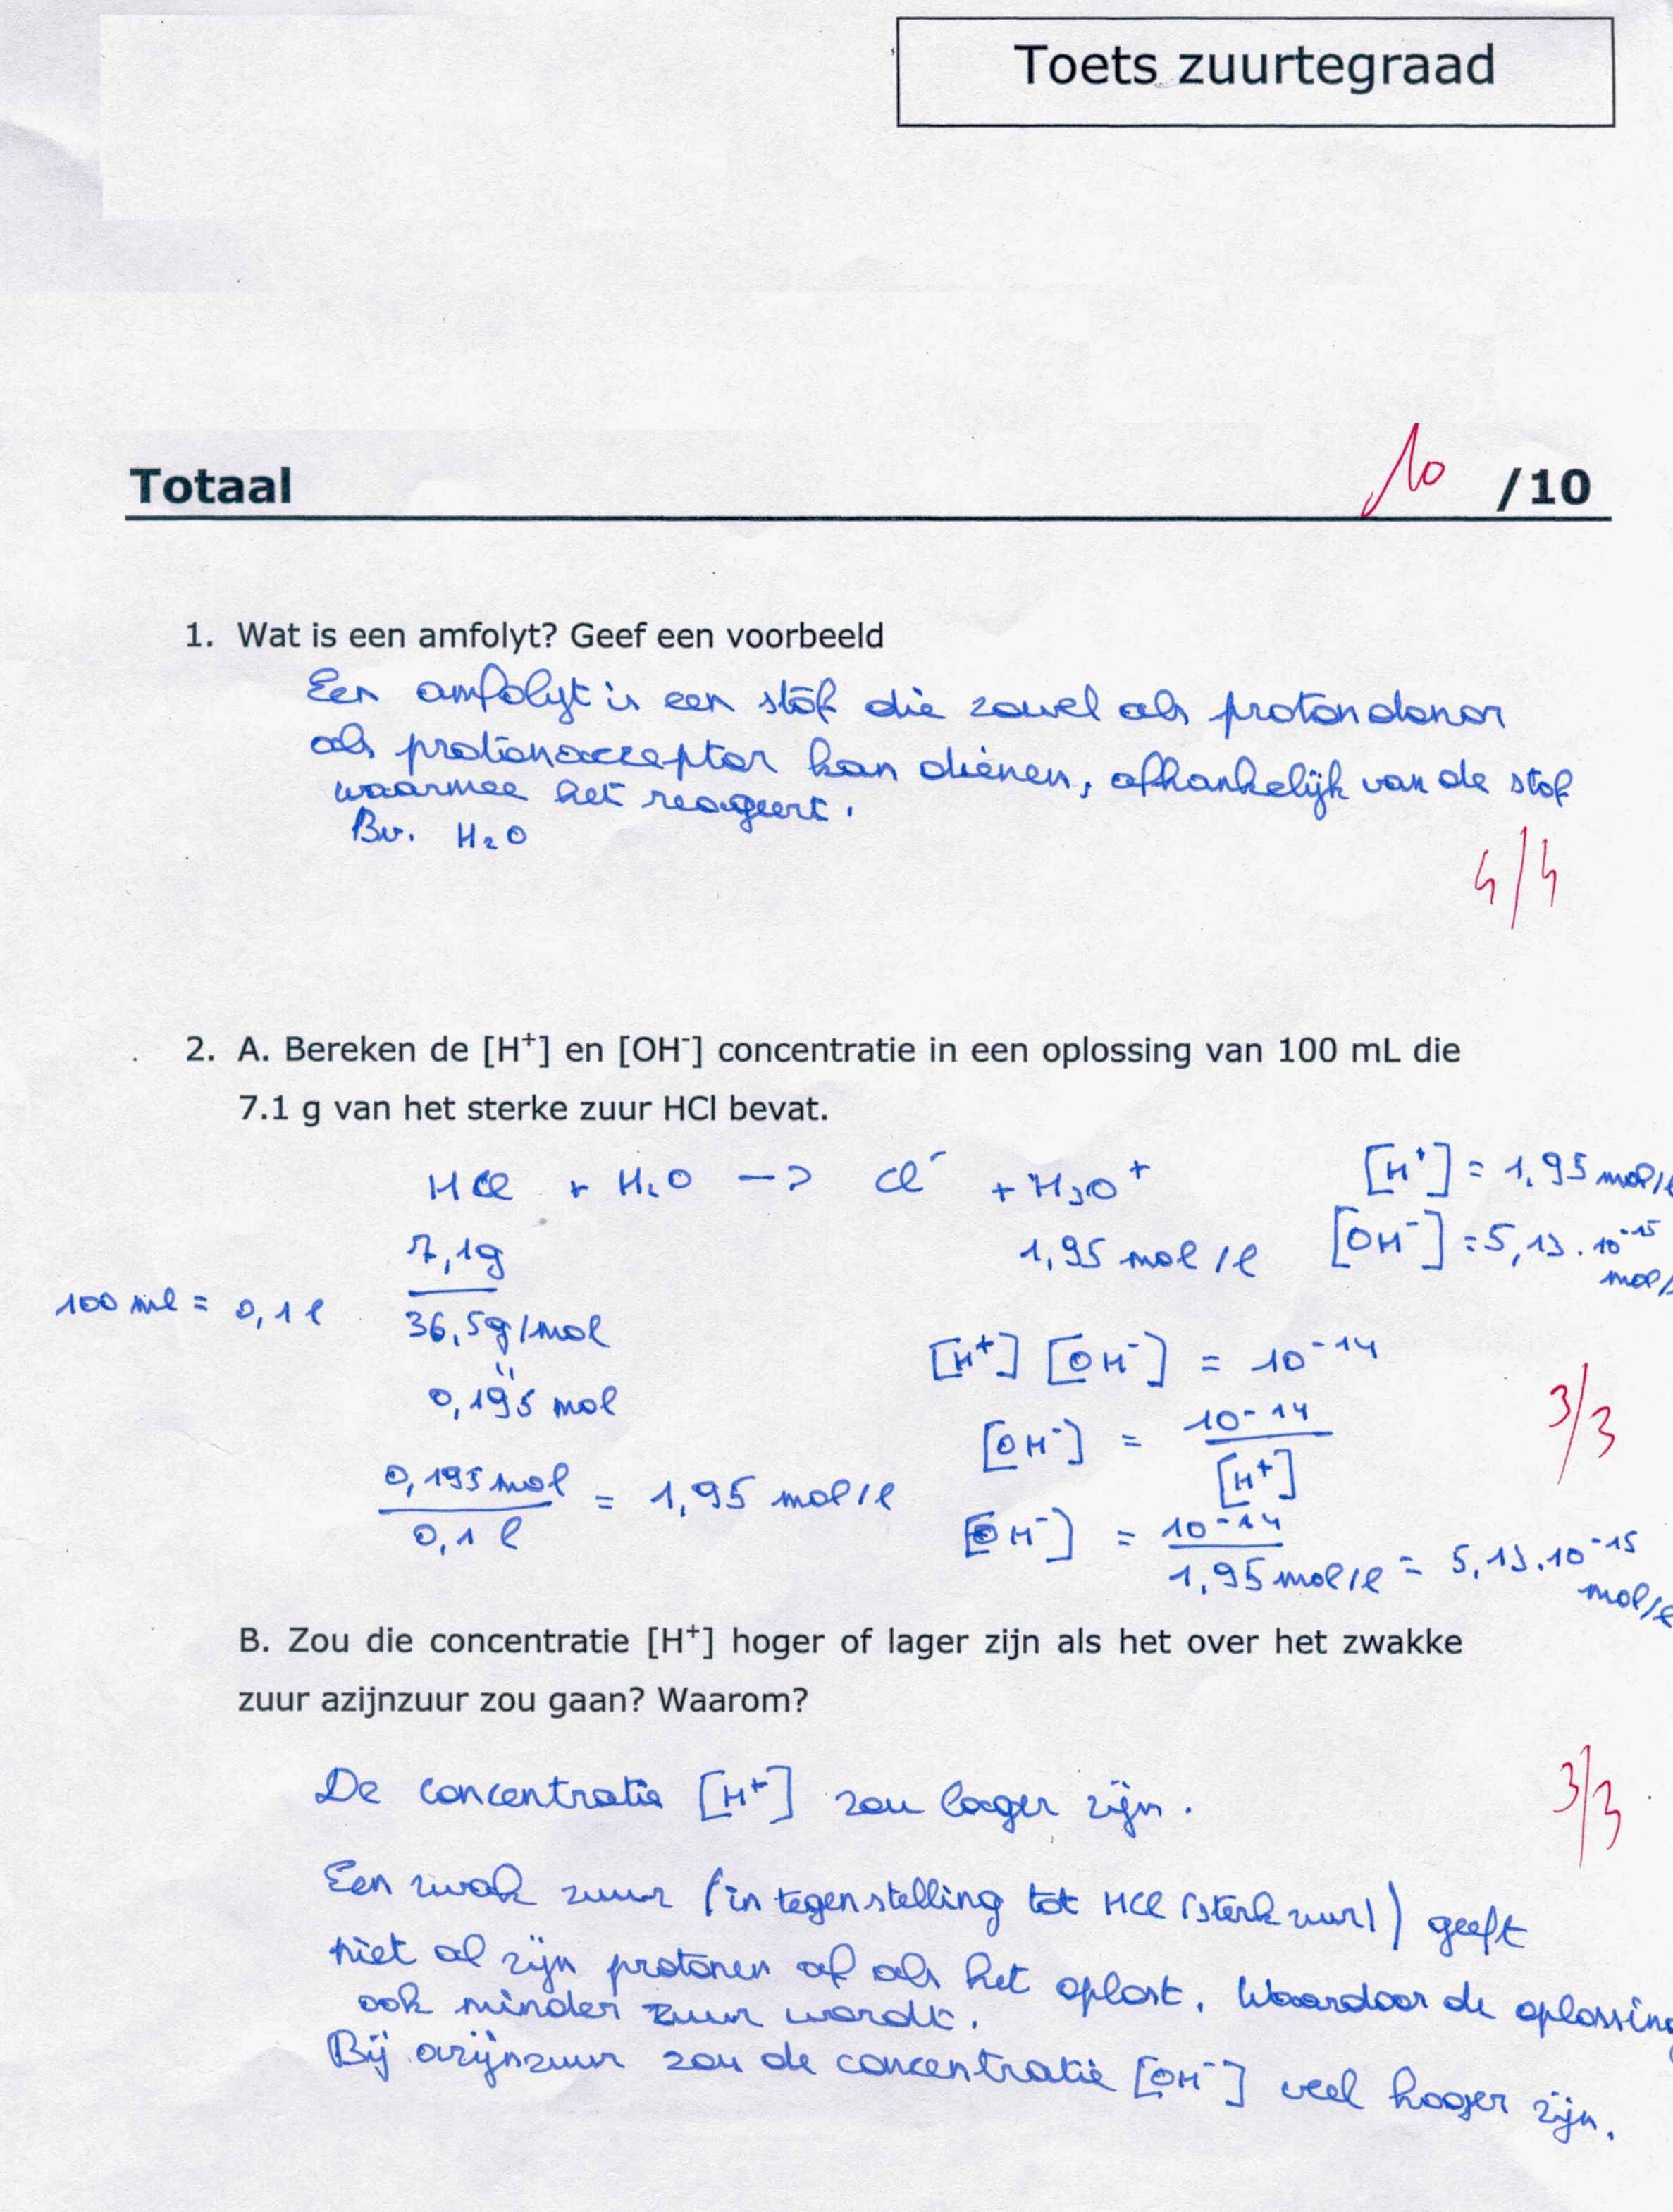 Toets zuurtegraad
Totaal 10 /10
1. Wat is een amfolyt? Geef een voorbeeld
Een amfolyt is een stof die zowel als protondonor
als protonacceptor kan dienen, afhankelijk van de stof
waarmee het reageert.
Bv. H₂O
4/4
2. A. Bereken de [H⁺] en [OH⁻] concentratie in een oplossing van 100 mL die
7.1 g van het sterke zuur HCl bevat.
HCl + H₂O -> Cl⁻ + H₃O⁺ [H⁺] = 1,95 mol/l
7,1g 1,95 mol/l [OH⁻] = 5,13 . 10⁻¹⁵
mol/
100 ml = 0,1 l 36,5g/mol
[H⁺] [OH⁻] = 10⁻¹⁴
"
0,195 mol
3/3
[OH⁻] = 10⁻¹⁴
[H⁺]
0,195 mol = 1,95 mol/l
0,1 l
[OH⁻] = 10⁻¹⁴
1,95 mol/l = 5,13.10⁻¹⁵
mol/l
B. Zou die concentratie [H⁺] hoger of lager zijn als het over het zwakke
zuur azijnzuur zou gaan? Waarom?
De concentratie [H⁺] zou lager zijn.
3/3
Een zwak zuur (in tegenstelling tot HCl (sterk zuur)) geeft
niet al zijn protonen af als het oplost. Waardoor de oplossing
ook minder zuur wordt.
Bij azijnzuur zou de concentratie [OH⁻] veel hoger zijn.